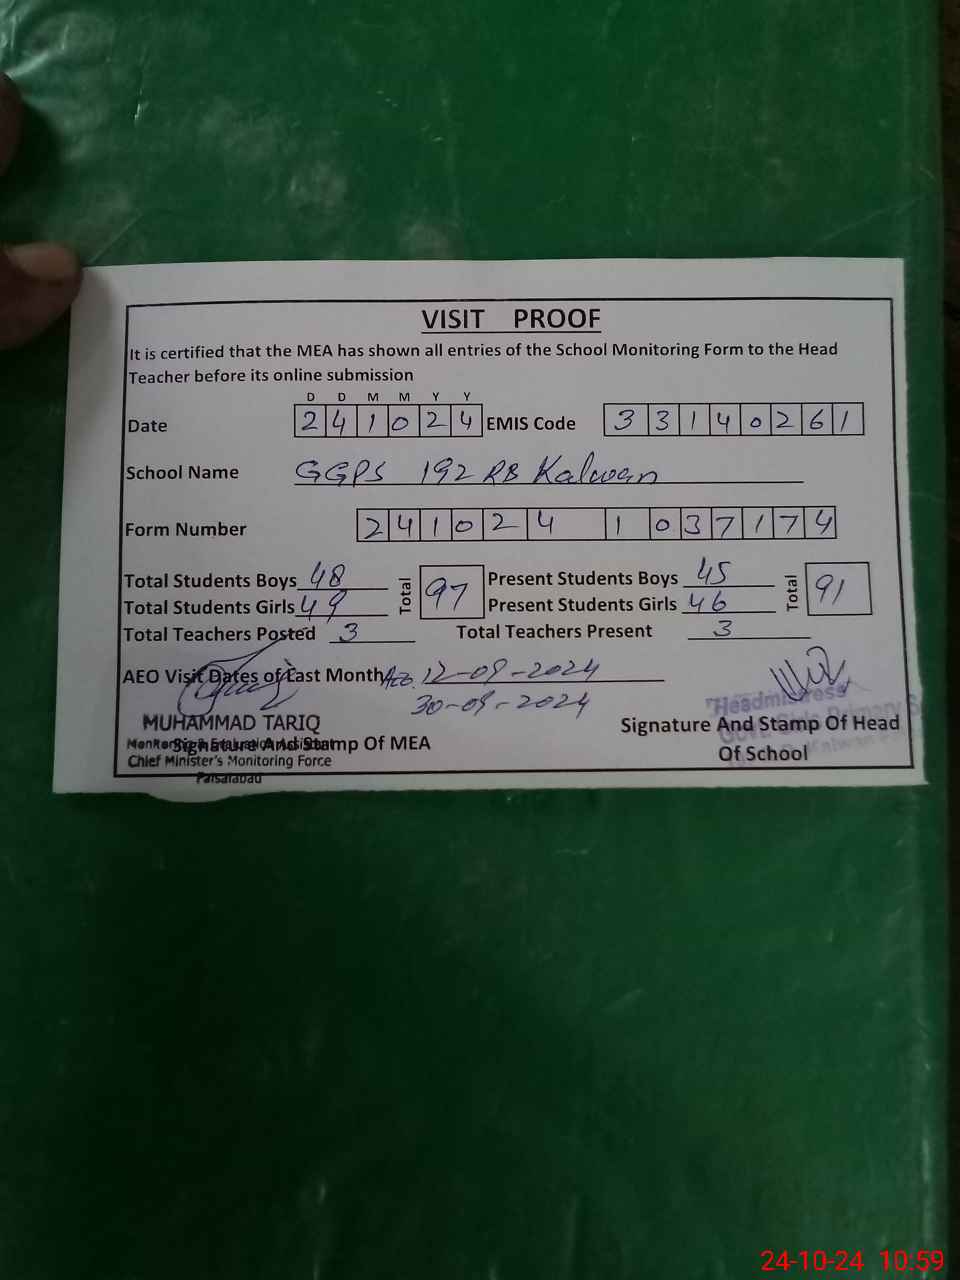 VISIT PROOF
It is certified that the MEA has shown all entries of the School Monitoring Form to the Head
Teacher before its online submission
D D M M Y Y
Date 2 4 1 0 2 4 EMIS Code 3 3 1 4 0 2 6 1
School Name GGPS 192 RB Kalwan
Form Number 2 4 1 0 2 4 1 0 3 7 1 7 4
Total Students Boys 48 Total 97 Present Students Boys 45 Total 91
Total Students Girls 49 Present Students Girls 46
Total Teachers Posted 3 Total Teachers Present 3
AEO Visit Dates of Last Month 12-09-2024
30-09-2024
MUHAMMAD TARIQ
Signature And Stamp Of MEA
Chief Minister's Monitoring Force
Faisalabad
Headmistress
Signature And Stamp Of Head
Of School
24-10-24 10:59